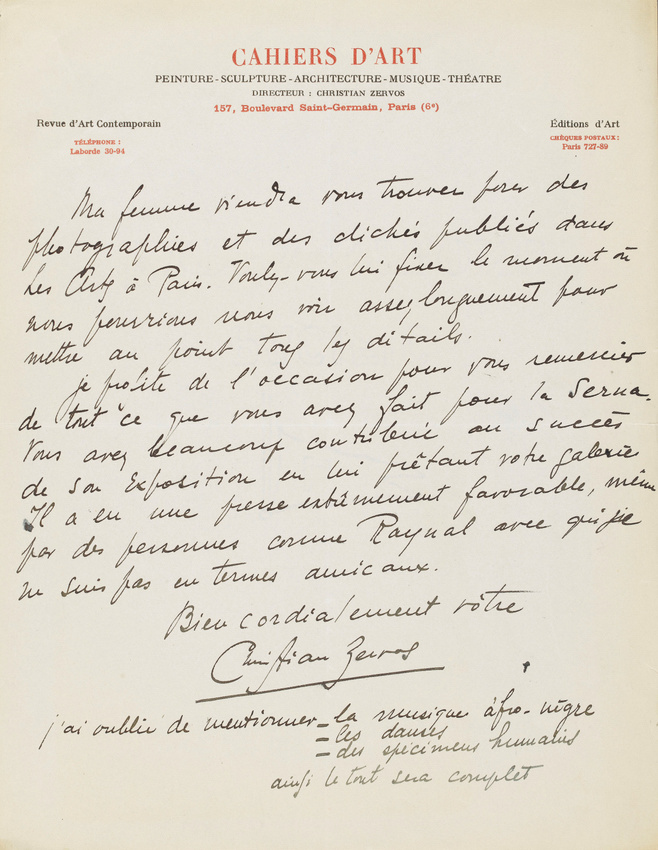 CAHIERS D'ART
PEINTURE - SCULPTURE - ARCHITECTURE - MUSIQUE - THÉATRE
DIRECTEUR : CHRISTIAN ZERVOS
157, Boulevard Saint-Germain, Paris (6e)
Revue d'Art Contemporain
TÉLÉPHONE :
Laborde 30-94
Éditions d'Art
CHÈQUES POSTAUX :
Paris 727-89
Ma femme viendra vous trouver pour des
photographies et des clichés publiés dans
Les Arts à Paris. Voulez-vous lui fixer le moment où
nous pourrions nous voir assez longuement pour
mettre au point tous les détails.
je profite de l'occasion pour vous remercier
de tout ce que vous avez fait pour la Serna.
Vous avez beaucoup contribué au succès
de son Exposition en lui prêtant votre galerie
Il a eu une presse extrêmement favorable, même
par des personnes comme Raynal avec qui je
ne suis pas en termes amicaux.
Bien cordialement vôtre
Christian Zervos
j'ai oublié de mentionner = la musique afro-nègre
= les danses
= des spécimens humains
ainsi le tout sera complet